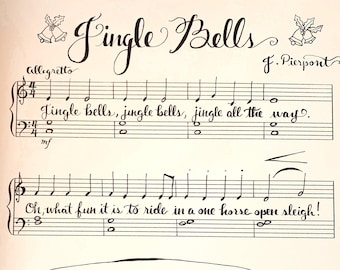 Jingle Bells
J. Pierpont
Allegretto
4 4
Jingle bells, jingle bells, jingle all the way.
4 4
mf
Oh, what fun it is to ride in a one horse open sleigh!